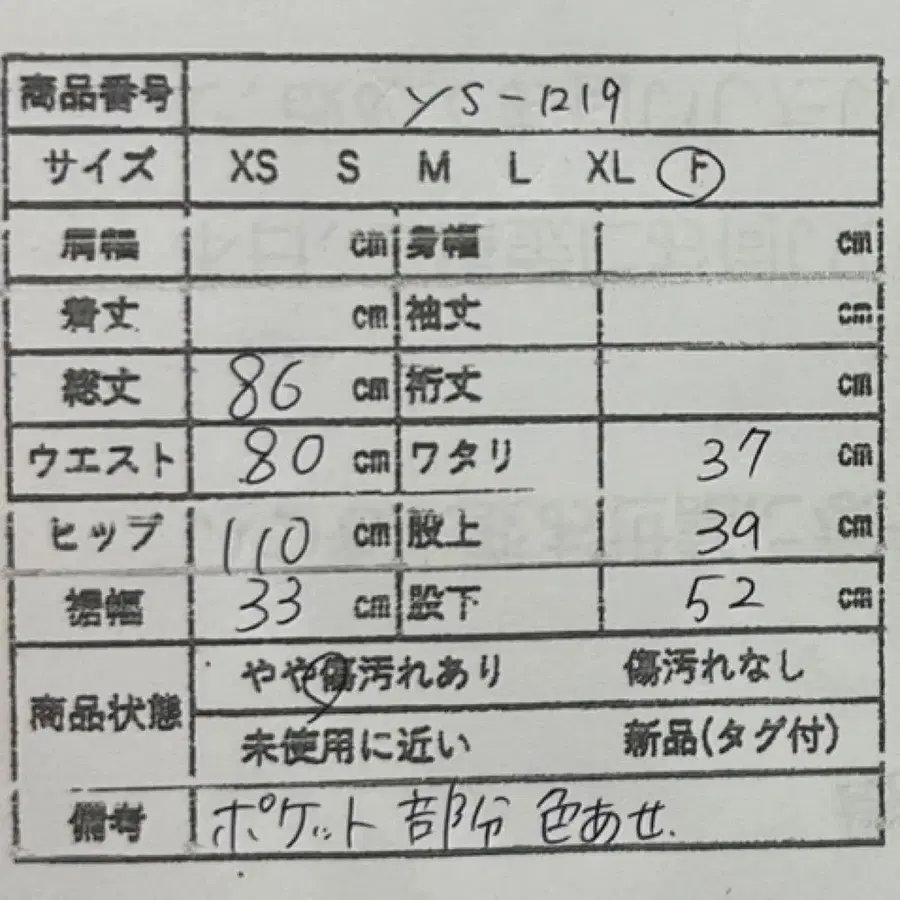 商品番号 YS-1219
サイズ XS S M L XL F
肩幅 cm 身幅 cm
着丈 cm 袖丈 cm
総丈 86 cm 裄丈 cm
ウエスト 80 cm ワタリ 37 cm
ヒップ 110 cm 股上 39 cm
裾幅 33 cm 股下 52 cm
商品状態 やや傷汚れあり 傷汚れなし
未使用に近い 新品(タグ付)
備考 ポケット部分 色あせ.